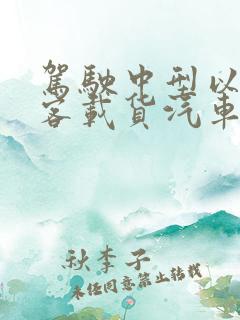 駕駛中型以
客載貨汽車
秋李子
未经同意禁止转载